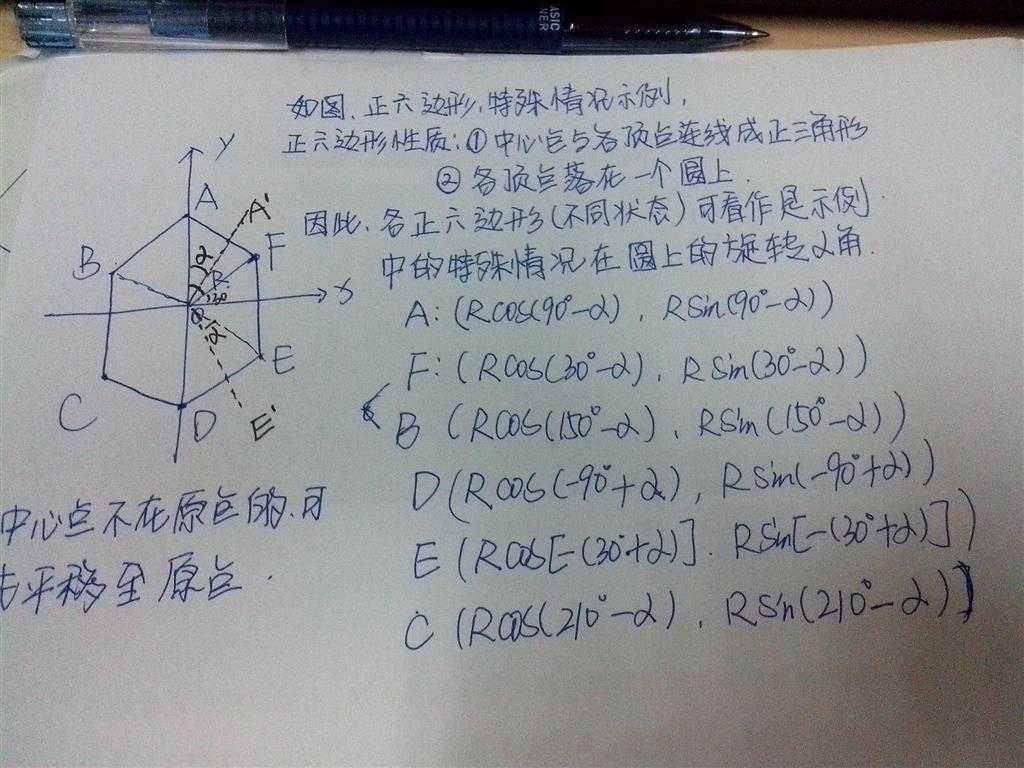 BASIC
NER
如图,正六边形,特殊情况示例,
正六边形性质:①中心点与各顶点连线成正三角形
②各顶点落在一个圆上.
因此,各正六边形(不同状态)可看作是示例
中的特殊情况在圆上的旋转α角.
A:(Rcos(90°-α), Rsin(90°-α))
F:(Rcos(30°-α), Rsin(30°-α))
B (Rcos(150°-α), Rsin(150°-α))
D(Rcos(-90°+α), Rsin(-90°+α))
E (Rcos[-(30°+α)], Rsin[-(30°+α)])
C (Rcos(210°-α), Rsin(210°-α))
y
A
A'
B
α
F
R
30
x
α
E
C
D
E'
中心点不在原点的,可
平移至原点.